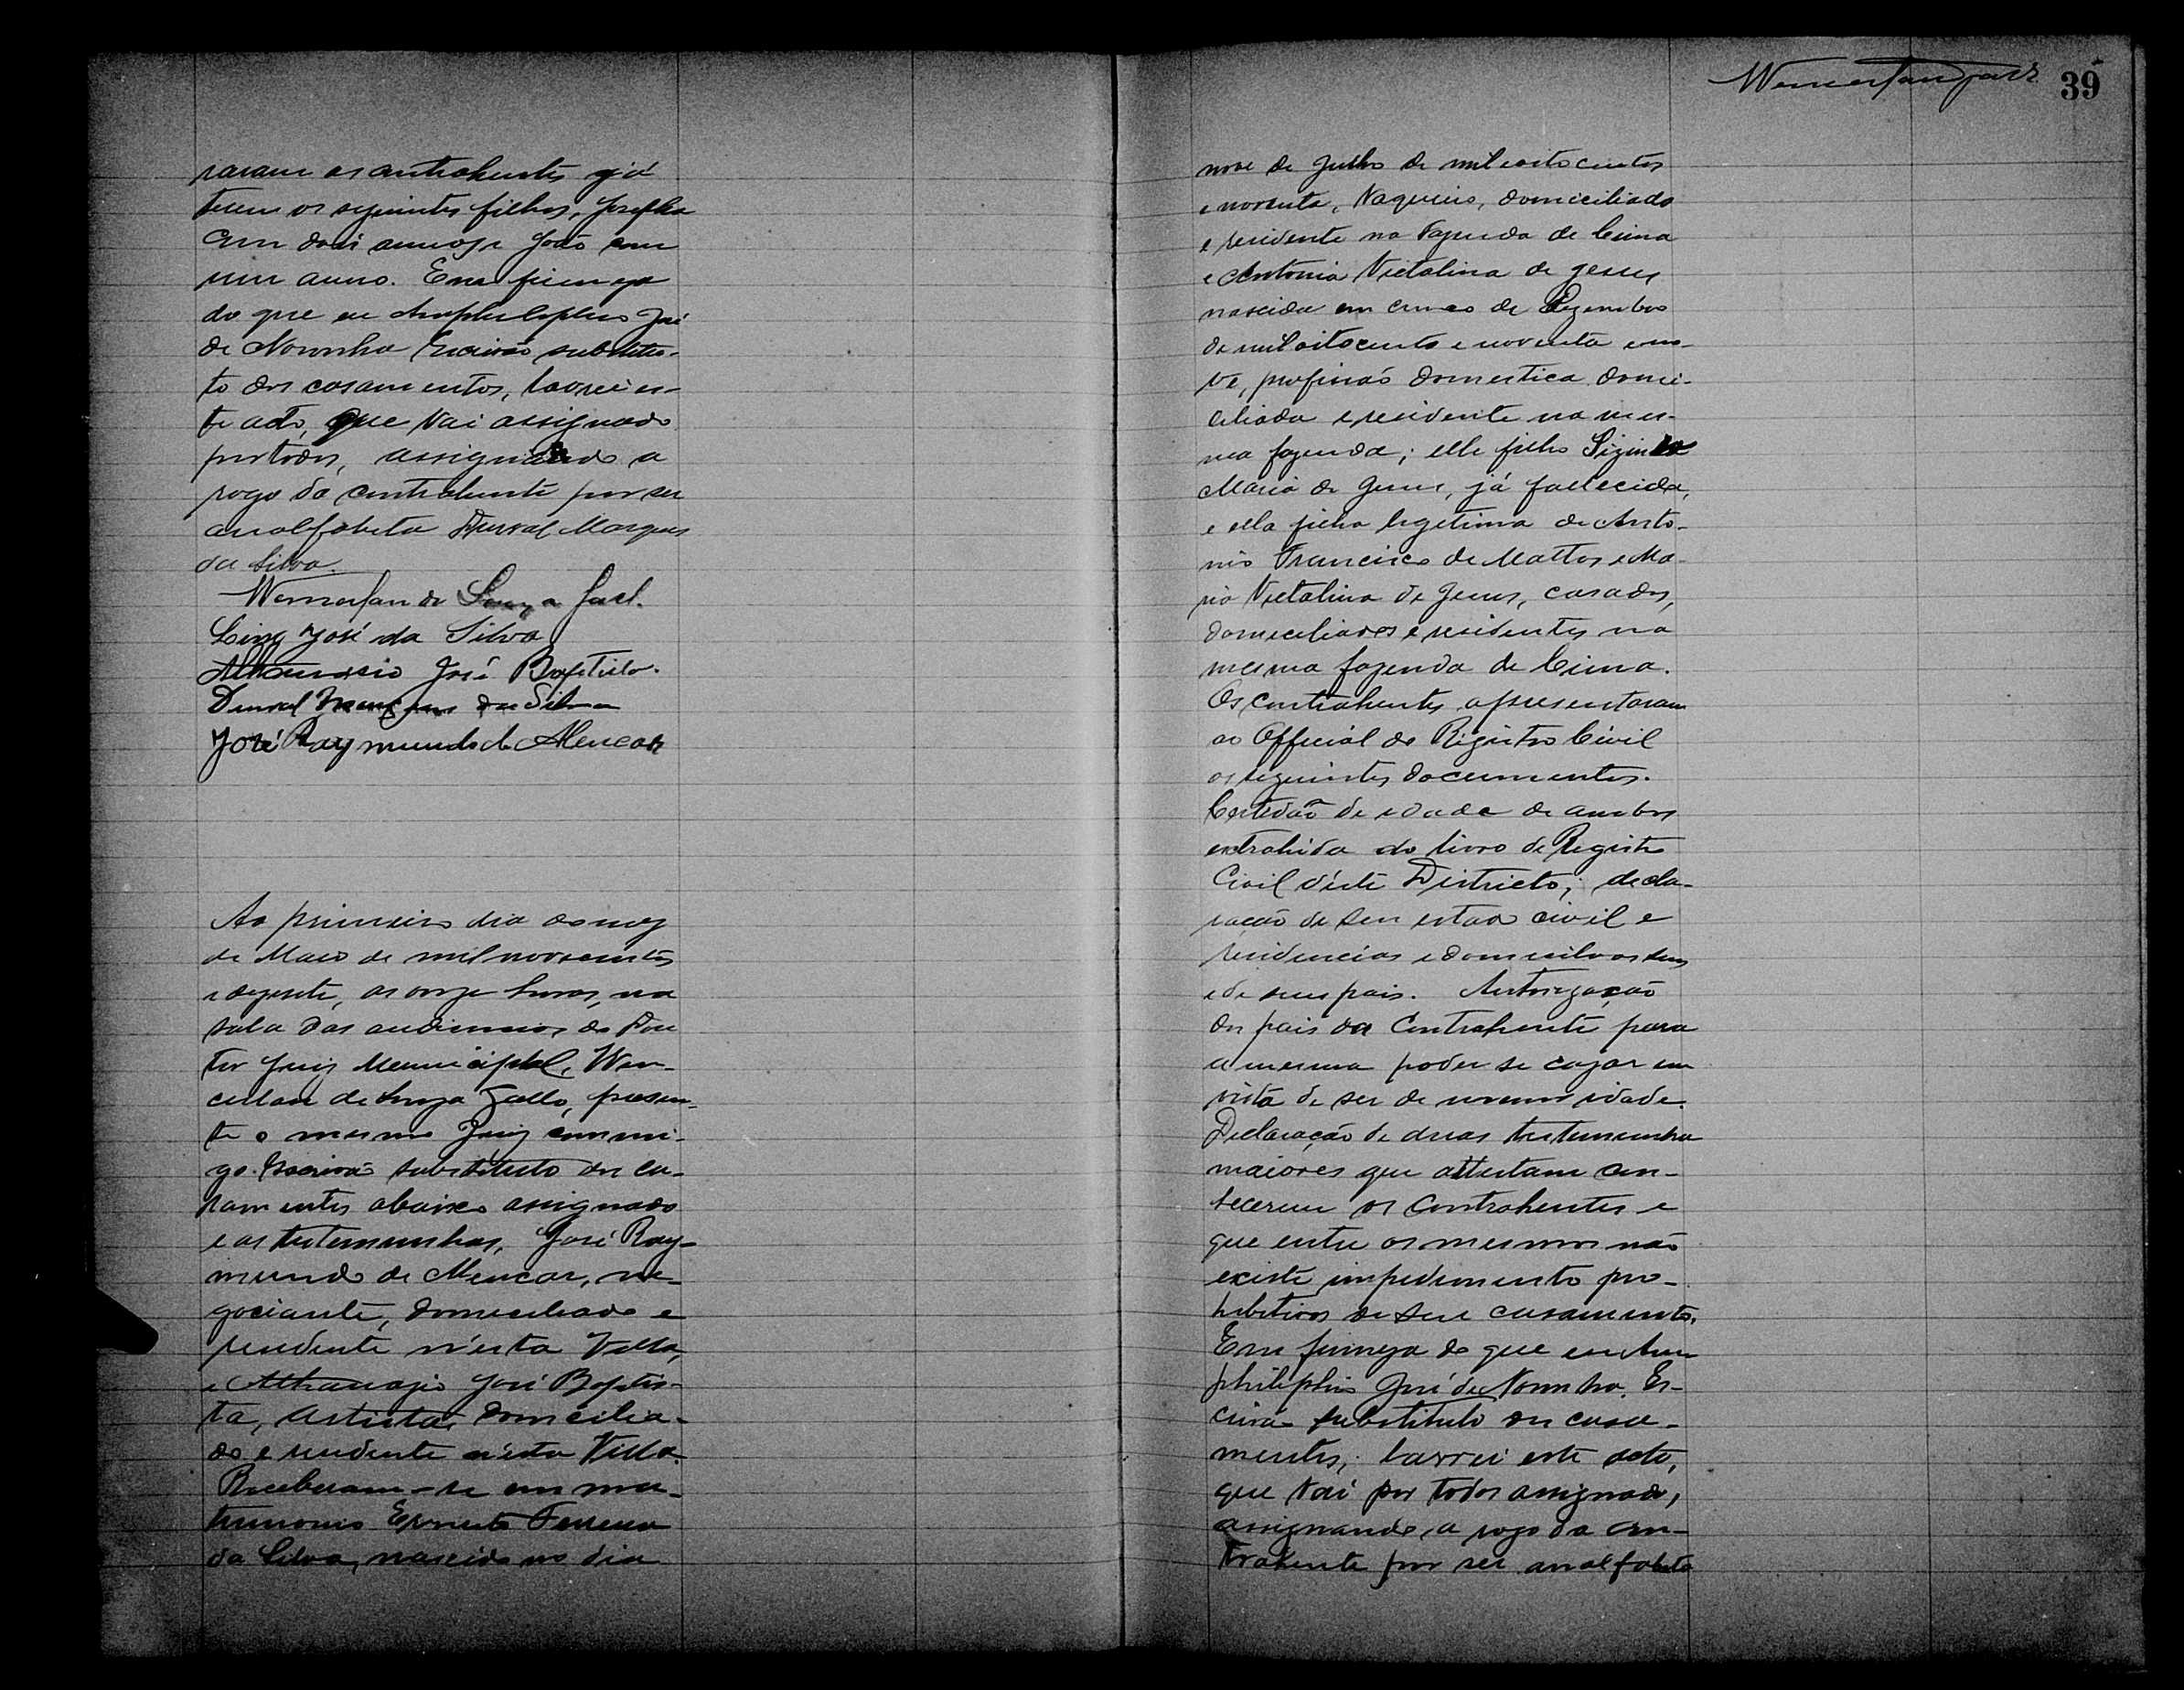 raram os contrahentes já
terem os seguintes filhos, Josepha
com dois annos e João com
um anno. Em firmeza
do que eu Amphiliphio José
de Noronha Escrivão substitu-
to dos casamentos, lavrei es-
te acto, que vai assignado
por todos, assignando a
rogo da contrahente por ser
analfabeta Durval Marques
da Silva.
Wenceslau de Souza Gall.
Lino José da Silva
Athanasio José Baptista.
Durval Marques da Silva
José Raymundo de Alencar
Ao primeiro dia do mez
de Maio de mil novecentos
e dezesete, as onze horas, na
sala das audiencias do Dou
tor Juiz Municipal, Wen-
ceslau de Souza Gallo, presen-
te o mesmo Juiz commi-
go Escrivão substituto dos ca-
samentos abaixo assignado
e as testemunhas, José Ray-
mundo de Alencar, ne-
gociante, domiciliado e
residente n'esta Villa,
e Athanazio José Baptis-
ta, artista, domicilia-
do e residente n'esta Villa.
Receberam-se em ma-
trimonio Ernesto Ferreira
da Silva, nascido no dia
39
nove de Julho de mil oitocentos
e noventa, Vaqueiro, domiciliado
e residente na Fazenda de Cima
e Antonia Victalina de Jesus
nascida em cinco de Dezembro
de mil oitocentos e noventa e no-
ve, profissão domestica domi-
ciliada e residente na mes-
ma fazenda; elle filho
Maria de Jesus, já fallecida,
e ella filha legitima de Anto-
nio Francisco de Mattos e Ma-
ria Victalina de Jesus, casados,
domiciliados e residentes na
mesma fazenda de Cima.
Os contrahentes apresentaram
ao Official do Registro Civil
os seguintes documentos.
Certidão de idade de ambos
extrahida do livro de Registro
Civil d'este Districto; decla-
ração de seu estado civil e
residencias e domicilios seus
e de seus pais. Autorização
dos pais da Contrahente para
a mesma poder se cazar em
vista de ser de menor idade.
Declaração de duas testemunhas
maiores que attestam con-
hecerem os Contrahentes e
que entre os mesmos não
existe impedimento pro-
hibitivos de seu casamento.
Em firmeza do que eu Am
philiphio José de Noronha, Es-
crivão substituto dos casa-
mentos, lavrei este acto,
que vai por todos assignado,
assignando, a rogo da con-
trahente por ser analfabeta